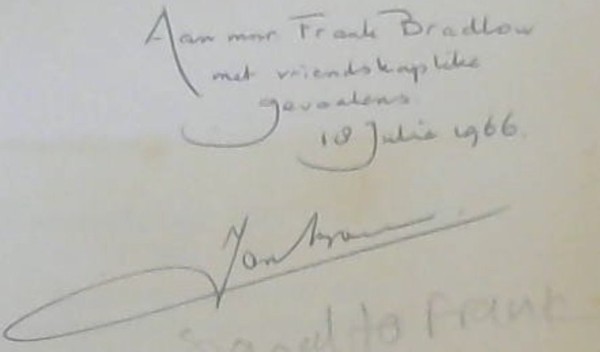 Aan mnr Frank Bradlow
met vriendskaplike
gevoelens
18 Julie 1966.
Jan
Signed to Frank